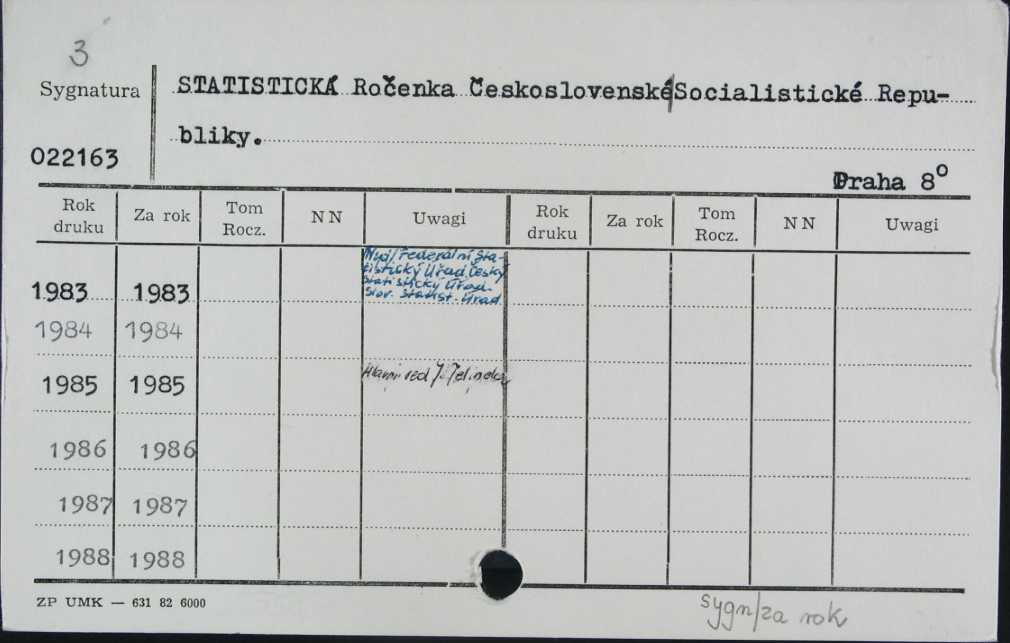 3
Sygnatura
STATISTICKÁ Ročenka Československé Socialistické Repu-
bliky.
022163
Praha 8°
Rok druku Za rok Tom Rocz. NN Uwagi Rok druku Za rok Tom Rocz. NN Uwagi
1983 1983 Federální Sta-
tistický Úřad. Český
Statistický Úřad.
Slov. Statist. Úrad
1984 1984
1985 1985 Hlavní red J. Jelínek
1986 1986
1987 1987
1988 1988
ZP UMK — 631 82 6000
sygn/za rok